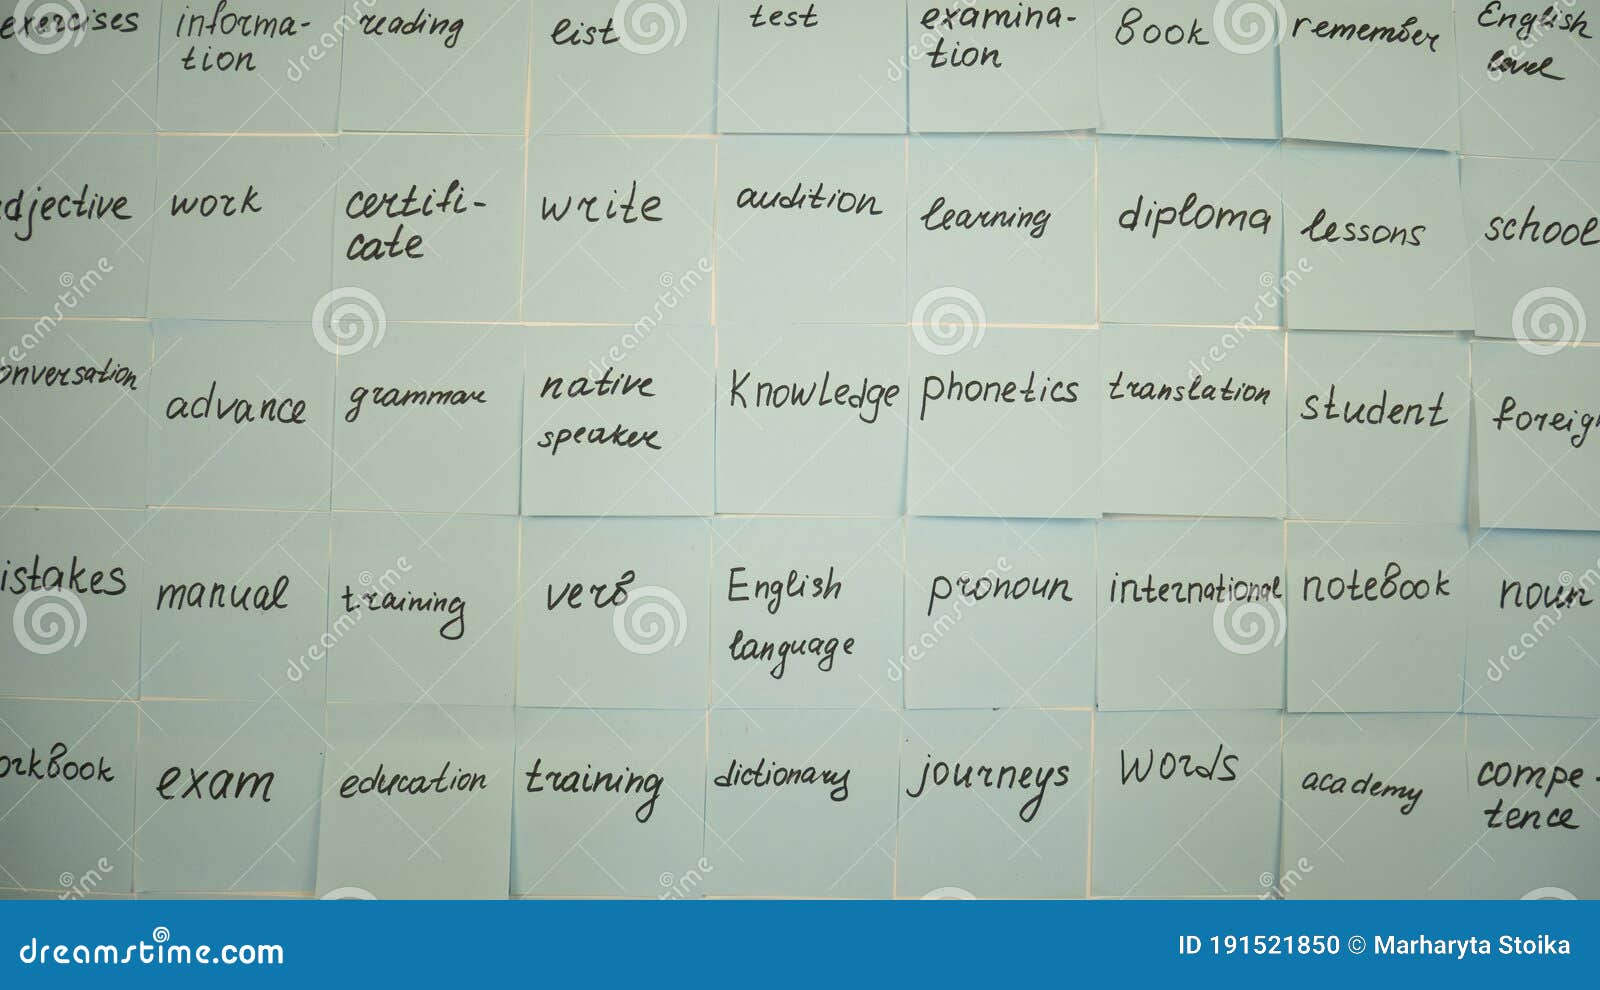 exercises
informa-
tion
reading
list
test
examina-
tion
book
remember
English
level
djective
work
certifi-
cate
write
audition
learning
diploma
lessons
school
onversation
advance
grammar
native
speaker
Knowledge
phonetics
translation
student
foreign
istakes
manual
training
verb
English
language
pronoun
international
notebook
noun
orkbook
exam
education
training
dictionary
journeys
words
academy
compe-
tence
dreamstime
dreamstime.com
ID 191521850 © Marharyta Stoika